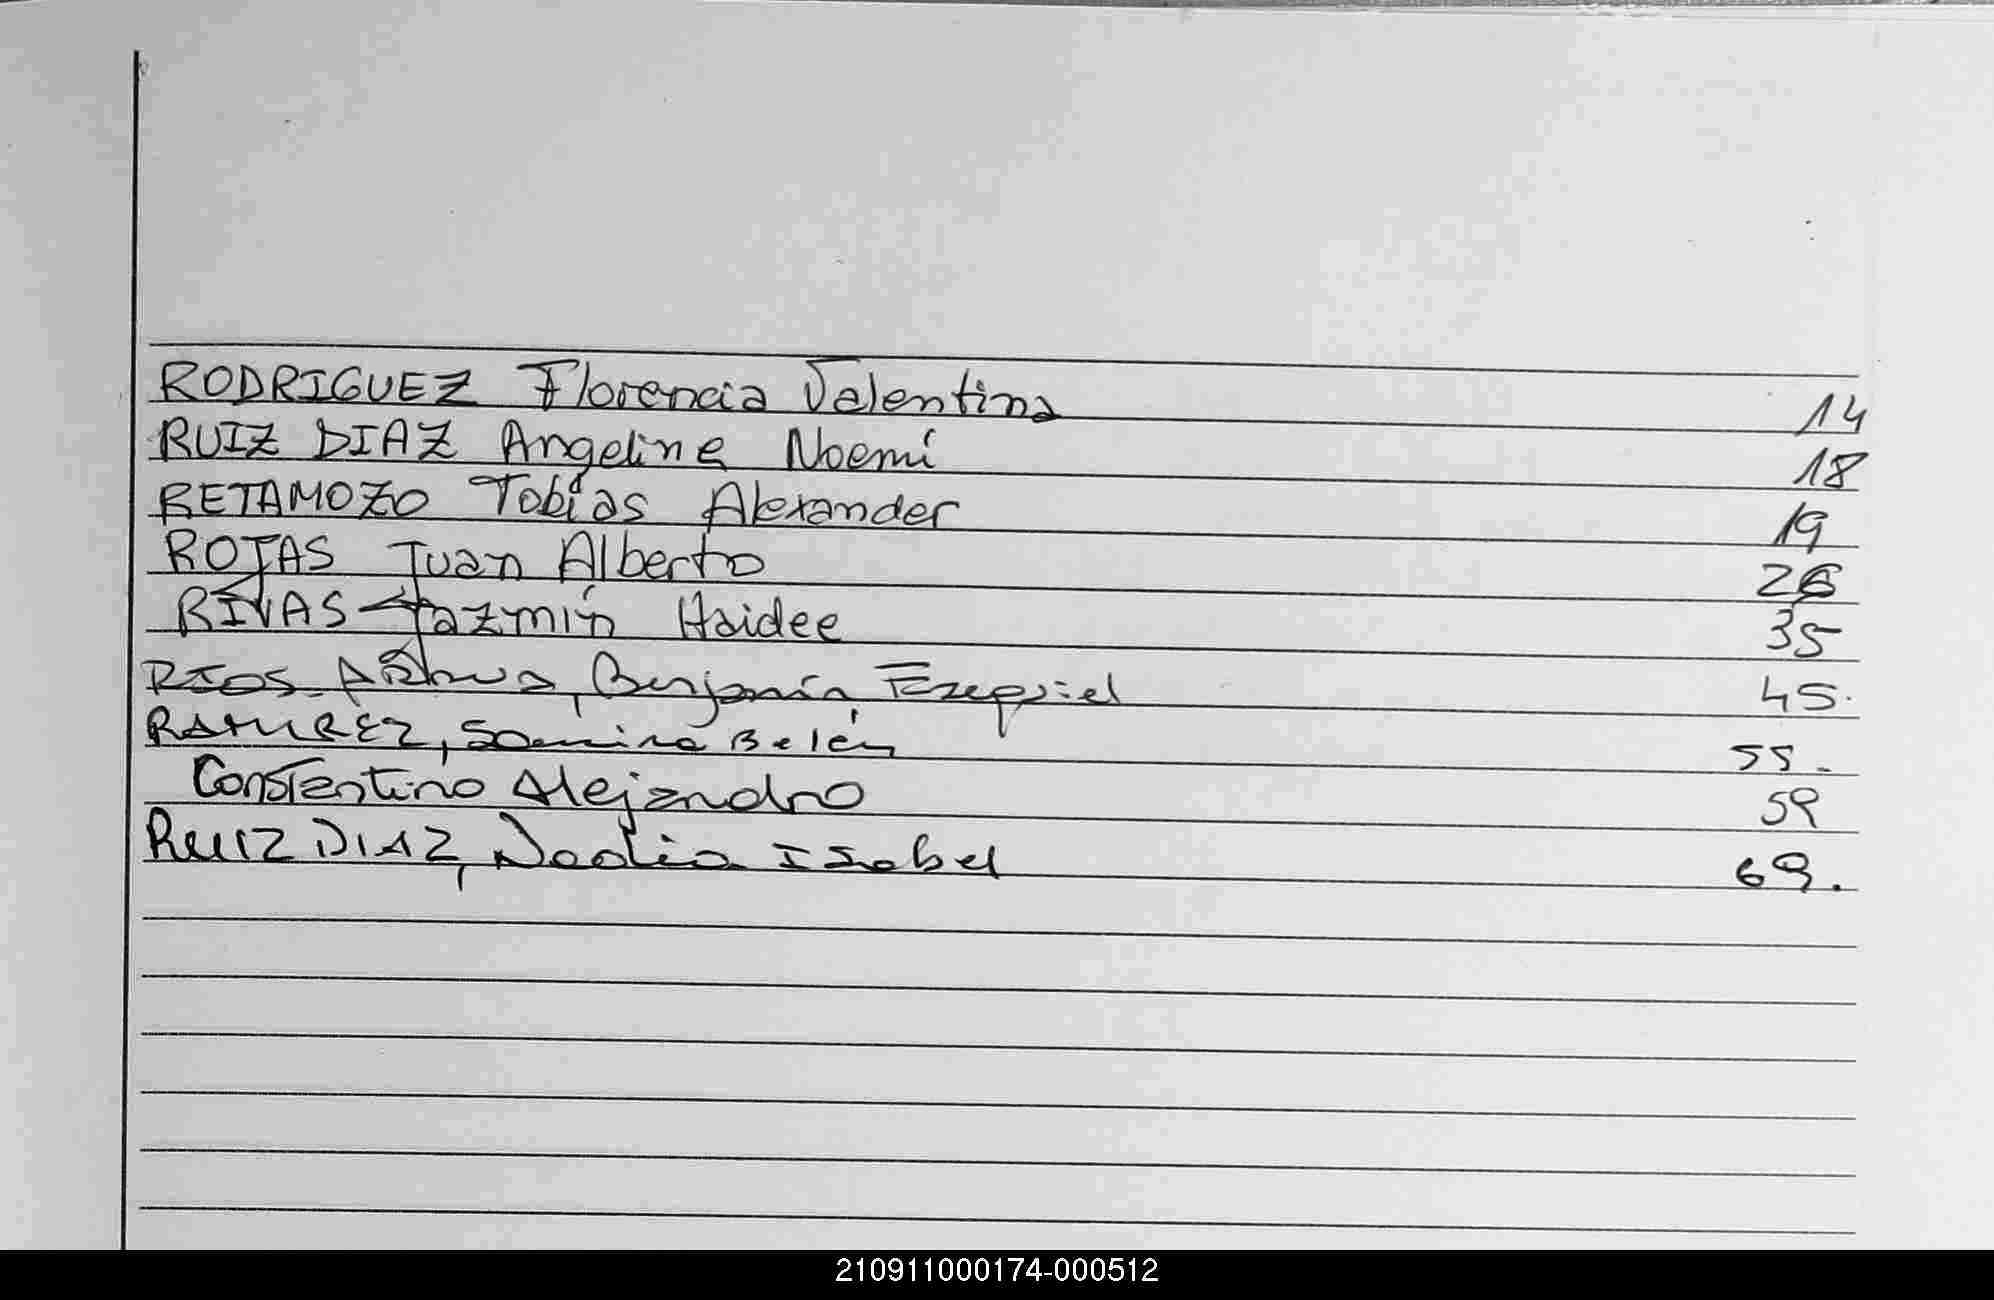 RODRIGUEZ Florencia Valentina 14
RUIZ DIAZ Angeline Noemí 18
RETAMOZO Tobías Alexander 19
ROJAS Juan Alberto 26
RIVAS Jazmín Haidee 35
RIOS Benjamín Ezequiel 45.
RAMIREZ, Samira Belén 55.
Constantino Alejandro 59
RUIZ DIAZ, Nadia Isabel 69.
210911000174-000512